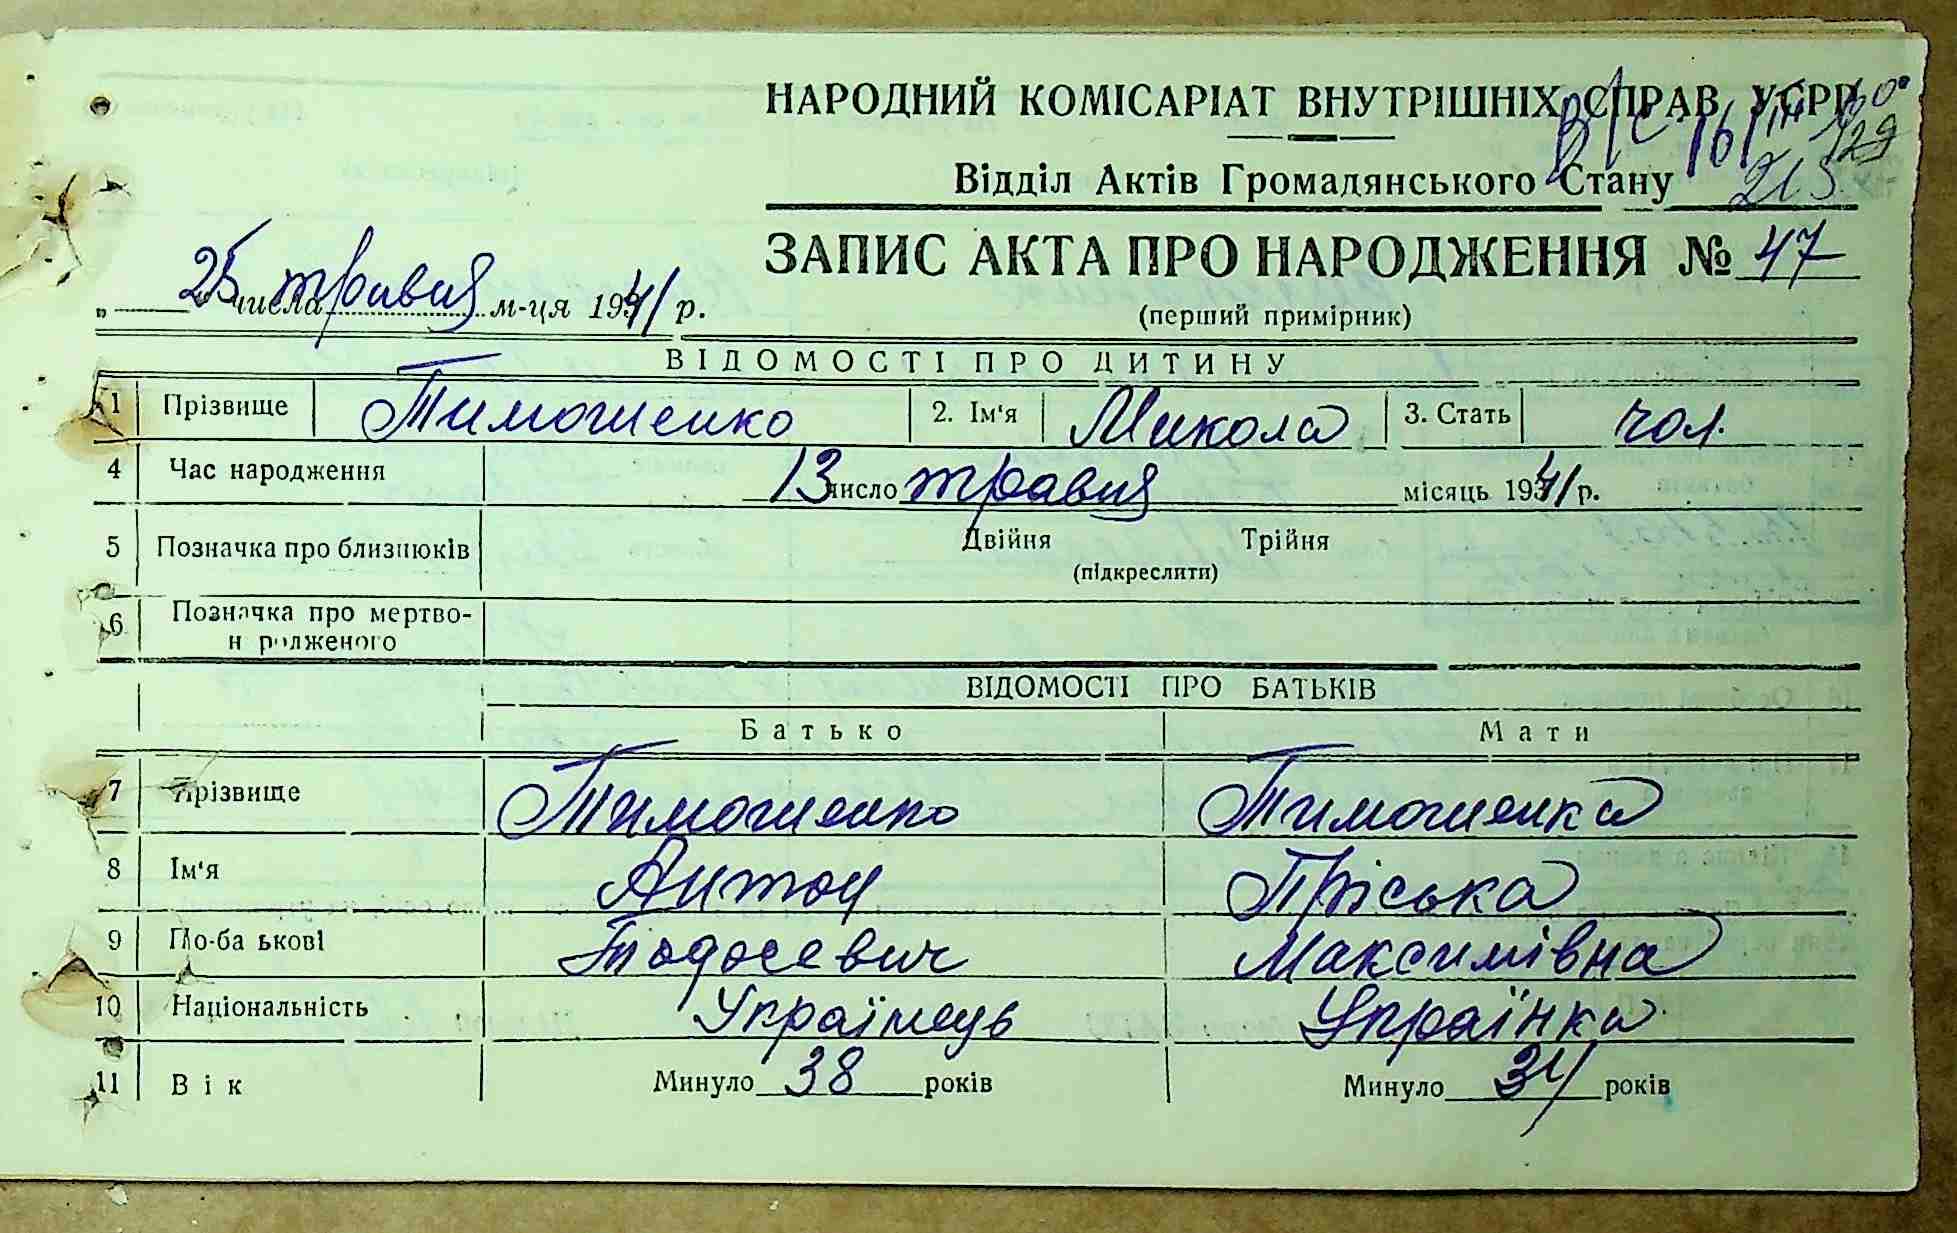 НАРОДНИЙ КОМІСАРІАТ ВНУТРІШНІХ СПРАВ УСРР
В/с 16/III 60°
129
Відділ Актів Громадянського Стану
213
ЗАПИС АКТА ПРО НАРОДЖЕННЯ № 47
„ 25 числа травня м-ця 1941 р.
(перший примірник)
ВІДОМОСТІ ПРО ДИТИНУ
1 Прізвище Тимошенко 2. Ім‘я Микола 3. Стать чол.
4 Час народження 13 число травня місяць 1941 р.
5 Позначка про близнюків Двійня Трійня
(підкреслити)
6 Позначка про мертво-
н родженого
ВІДОМОСТІ ПРО БАТЬКІВ
Батько Мати
7 Прізвище Тимошенко Тимошенка
8 Ім‘я Антон Пріська
9 По-ба ькові Тодосевич Максимівна
10 Національність Українець Українка
11 Вік Минуло 38 років Минуло 34 років